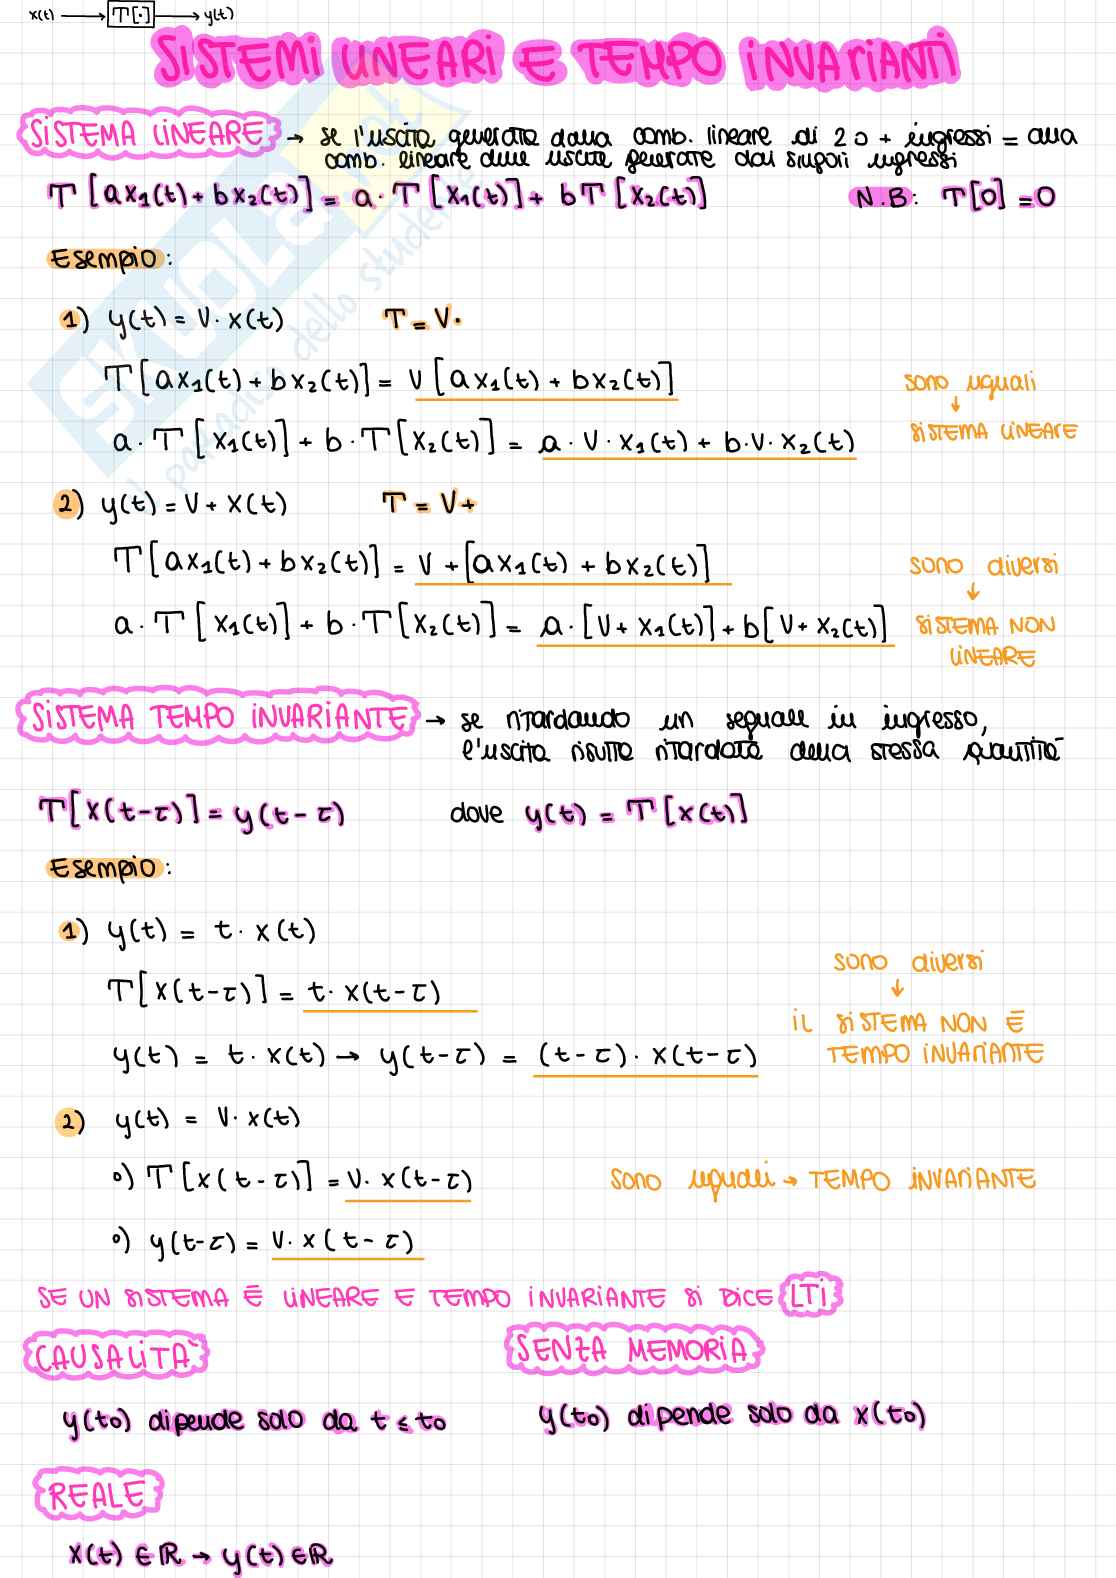 x(t) → T[·] → y(t)
SISTEMI LINEARI E TEMPO INVARIANTI
SISTEMA LINEARE → se l'uscita generata dalla comb. lineare di 2 o + ingressi = alla
comb. lineare delle uscite generate dai singoli ingressi
T[ax₁(t) + bx₂(t)] = a · T[x₁(t)] + bT[x₂(t)] N.B: T[0] = 0
Esempio:
1) y(t) = V · x(t) T = V·
T[ax₁(t) + bx₂(t)] = V[ax₁(t) + bx₂(t)]
sono uguali
↓
a · T[x₁(t)] + b · T[x₂(t)] = a · V · x₁(t) + b · V · x₂(t) SISTEMA LINEARE
2) y(t) = V + x(t) T = V+
T[ax₁(t) + bx₂(t)] = V + [ax₁(t) + bx₂(t)]
sono diversi
↓
a · T[x₁(t)] + b · T[x₂(t)] = a · [V + x₁(t)] + b[V + x₂(t)] SISTEMA NON
LINEARE
SISTEMA TEMPO INVARIANTE → se ritardando un segnale in ingresso,
l'uscita risulta ritardata della stessa quantità
T[x(t-τ)] = y(t-τ) dove y(t) = T[x(t)]
Esempio:
1) y(t) = t · x(t)
sono diversi
↓
T[x(t-τ)] = t · x(t-τ)
IL SISTEMA NON È
TEMPO INVARIANTE
y(t) = t · x(t) → y(t-τ) = (t-τ) · x(t-τ)
2) y(t) = V · x(t)
°) T[x(t-τ)] = V · x(t-τ) sono uguali → TEMPO INVARIANTE
°) y(t-τ) = V · x(t-τ)
SE UN SISTEMA È LINEARE E TEMPO INVARIANTE SI DICE LTI
CAUSALITÀ SENZA MEMORIA
y(t₀) dipende solo da t ≤ t₀ y(t₀) dipende solo da x(t₀)
REALE
x(t) ∈ ℝ → y(t) ∈ ℝ